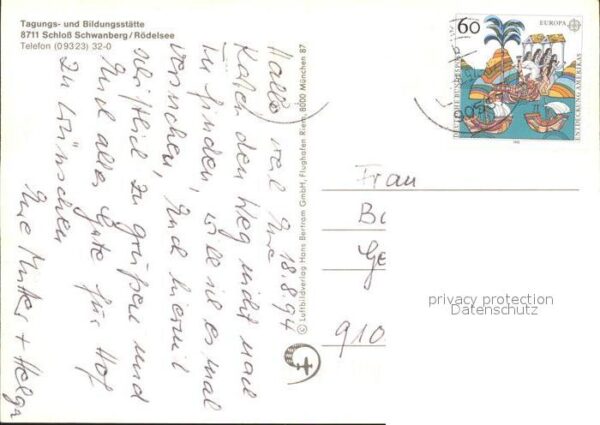 Tagungs- und Bildungsstätte
8711 Schloß Schwanberg/Rödelsee
Telefon (09323) 32-0
18.8.94
Hallo, weil Ihre
Katch den Weg nicht nach
finden, will ich es mal
versuchen, Euch hiermit
herzlich zu grüßen und
Euch alles Gute für Hof
zu wünschen
Ihre Mutter + Helga
© Luftbildverlag Hans Bertram GmbH, Flughafen Riem, 8000 München 87
60
EUROPA
DEUTSCHE BUNDESPOST
ENTDECKUNG AMERIKAS
Frau
910
privacy protection
Datenschutz